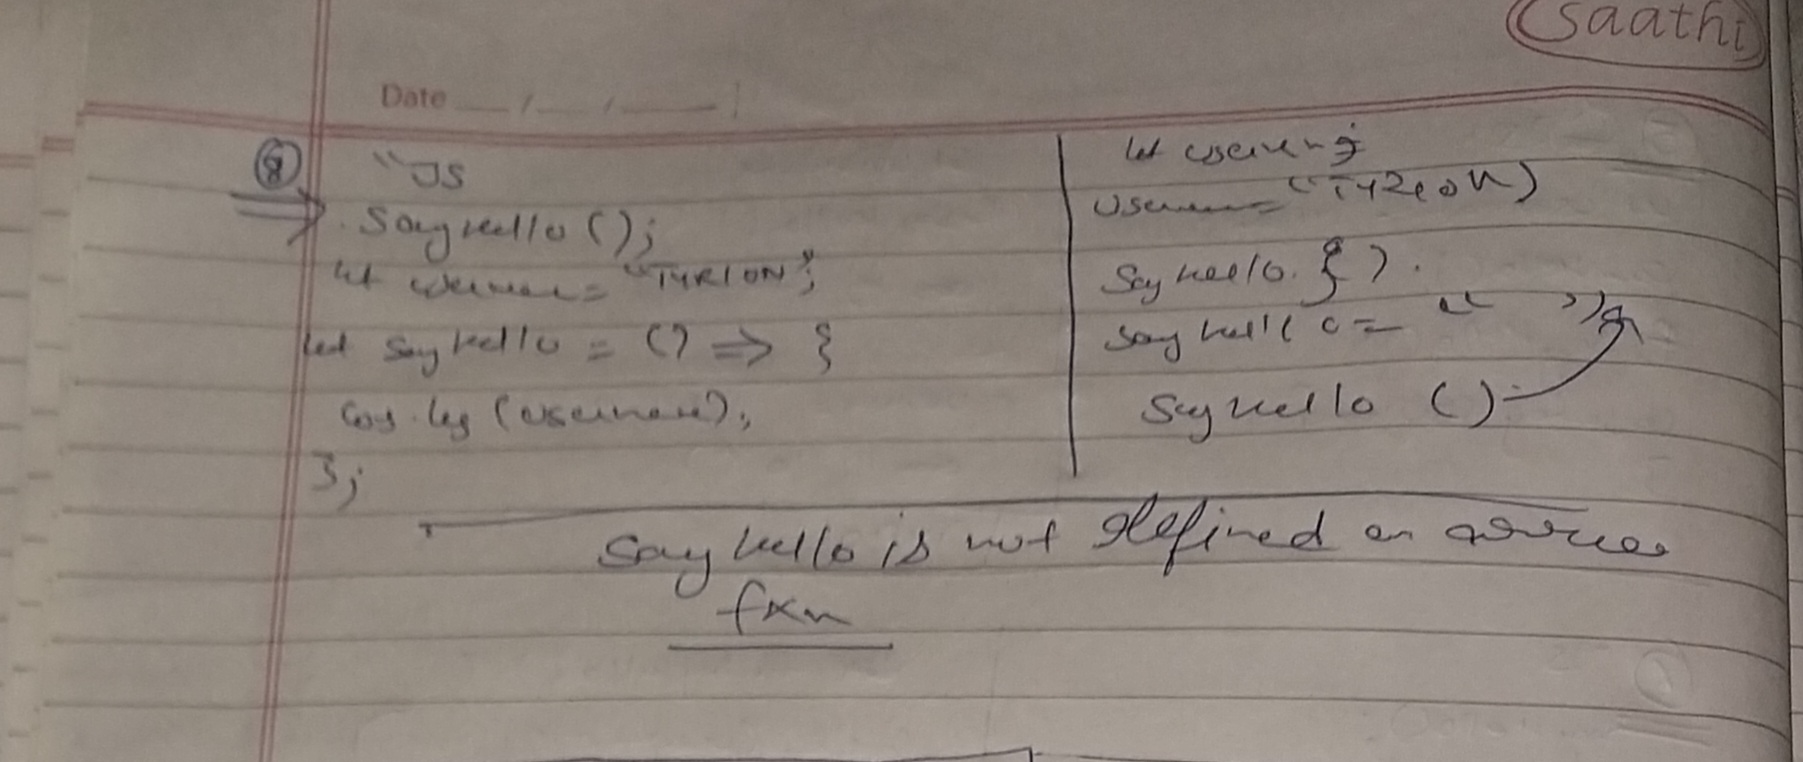 Saathi
Date
8
"JS
Sayhello();
let username = "TYRION";
let Sayhello = () => {
Cos.log (username);
};
let username;
username = "TYRION)
Sayhello. { }.
Sayhello = " "
Sayhello ()
Sayhello is not defined
fxn